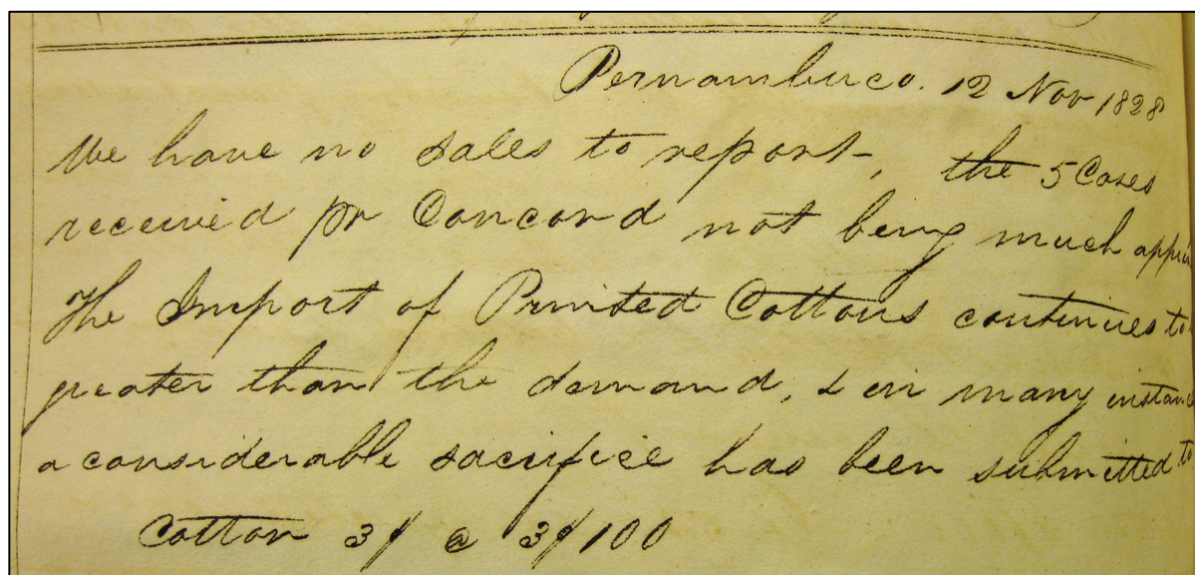 Pernambuco. 12 Nov 1828
We have no sales to report, the 5 Cases
received pr Concord not being much
The Import of Printed Cottons continues to
greater than the demand, & in many
a considerable sacrifice has been submitted to
Cotton 3$ @ 3$100